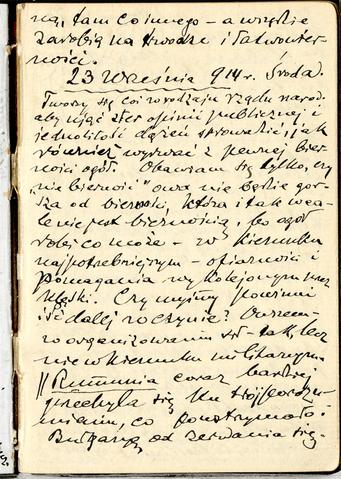 ną, tam co innego – a wszędzie
zarobią na trwodze i łatwowier-
ności.
23 Września 914 r. Środa.
Tworzy się coś w rodzaju rządu narod.
aby ująć ster opinii publicznej i
jednolitość dążeń sprowadzić, jak
również wyrwać z pewnej bier-
ności ogół. Obawiam się tylko, czy
"nie bierność" owa nie będzie gor-
sza od bierności, która i tak wca-
le nie jest biernością, bo ogół
robi co może – w kierunku
najpotrzebniejszym – ofiarności i
pomagania wykolejonym przez
klęski. Czy myśmy powinni
iść dalej w czynie?
w organizowaniu się – tak, lecz
nie w kierunku militarnym.
|| Rumunia coraz bardziej
przechyla się ku trójporozu-
mieniu, co powstrzymało
Bułgarję od zerwania się